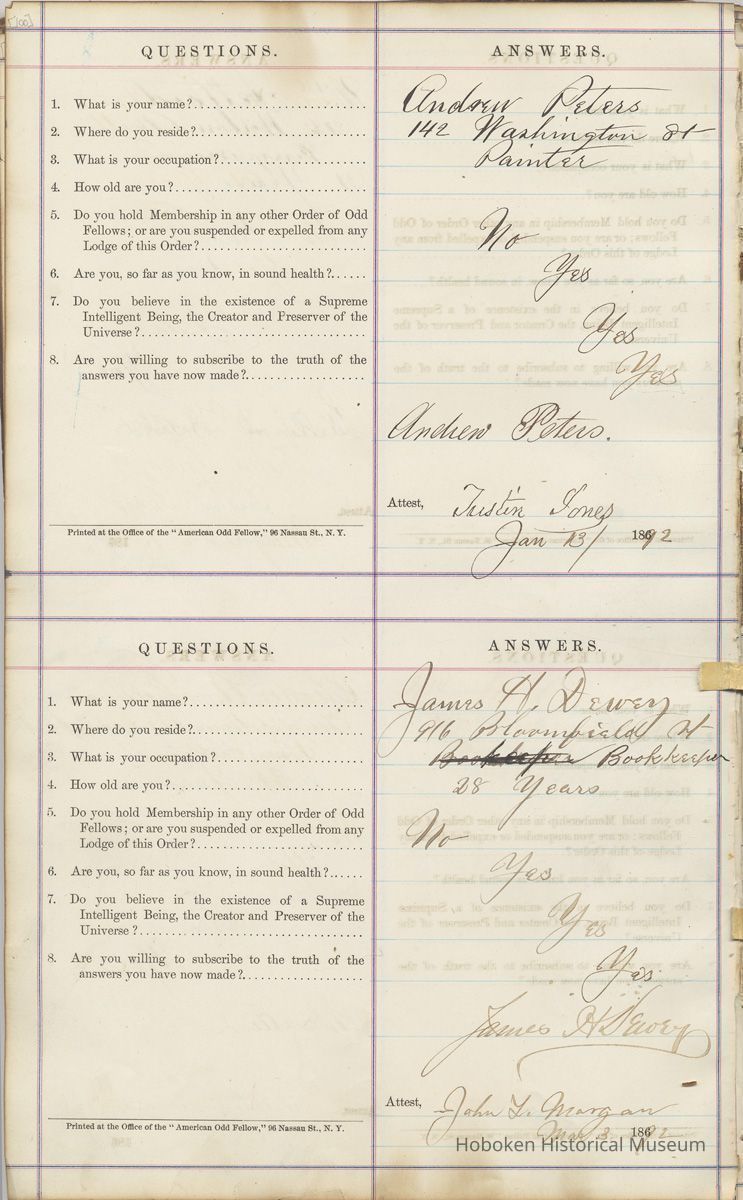 [100]
QUESTIONS.
ANSWERS.
1. What is your name?
Andrew Peters
2. Where do you reside?
142 Washington St
3. What is your occupation?
Painter
4. How old are you?
5. Do you hold Membership in any other Order of Odd
Fellows; or are you suspended or expelled from any
Lodge of this Order?
No
6. Are you, so far as you know, in sound health?
Yes
7. Do you believe in the existence of a Supreme
Intelligent Being, the Creator and Preserver of the
Universe?
Yes
8. Are you willing to subscribe to the truth of the
answers you have now made?
Yes
Andrew Peters.
Attest, Justin Jones
Jan 13/ 1892
Printed at the Office of the "American Odd Fellow," 96 Nassau St., N. Y.
QUESTIONS.
ANSWERS.
1. What is your name?
James H. Dewey
2. Where do you reside?
916 Bloomfield St
3. What is your occupation?
Bookkeeper Bookkeeper
4. How old are you?
28 Years
5. Do you hold Membership in any other Order of Odd
Fellows; or are you suspended or expelled from any
Lodge of this Order?
No
6. Are you, so far as you know, in sound health?
Yes
7. Do you believe in the existence of a Supreme
Intelligent Being, the Creator and Preserver of the
Universe?
Yes
8. Are you willing to subscribe to the truth of the
answers you have now made?
Yes
James H Dewey
Attest, John L. Morgan
Mar 3 1892
Printed at the Office of the "American Odd Fellow," 96 Nassau St., N. Y.
Hoboken Historical Museum